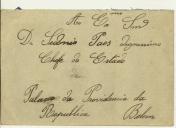 Ao Ex Snr
Dr Sidonio Paes Dignissimo
Chefe de Estado
Palacio da Presidencia da
Republica Belem